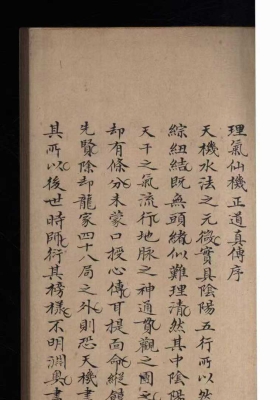 理氣仙機正道真傳序
天機水法之元微實具陰陽五行所以然
綜紐結既無頭緒似難理清然其中陰陽
天干之氣流行地脉之神通貫觀之圖文
却有條分未蒙口授心傳耳提面命縱饒
先賢除却龍家四十八局之外則恐天機書
其所以後世時師衍其榜樣不明淵奧書